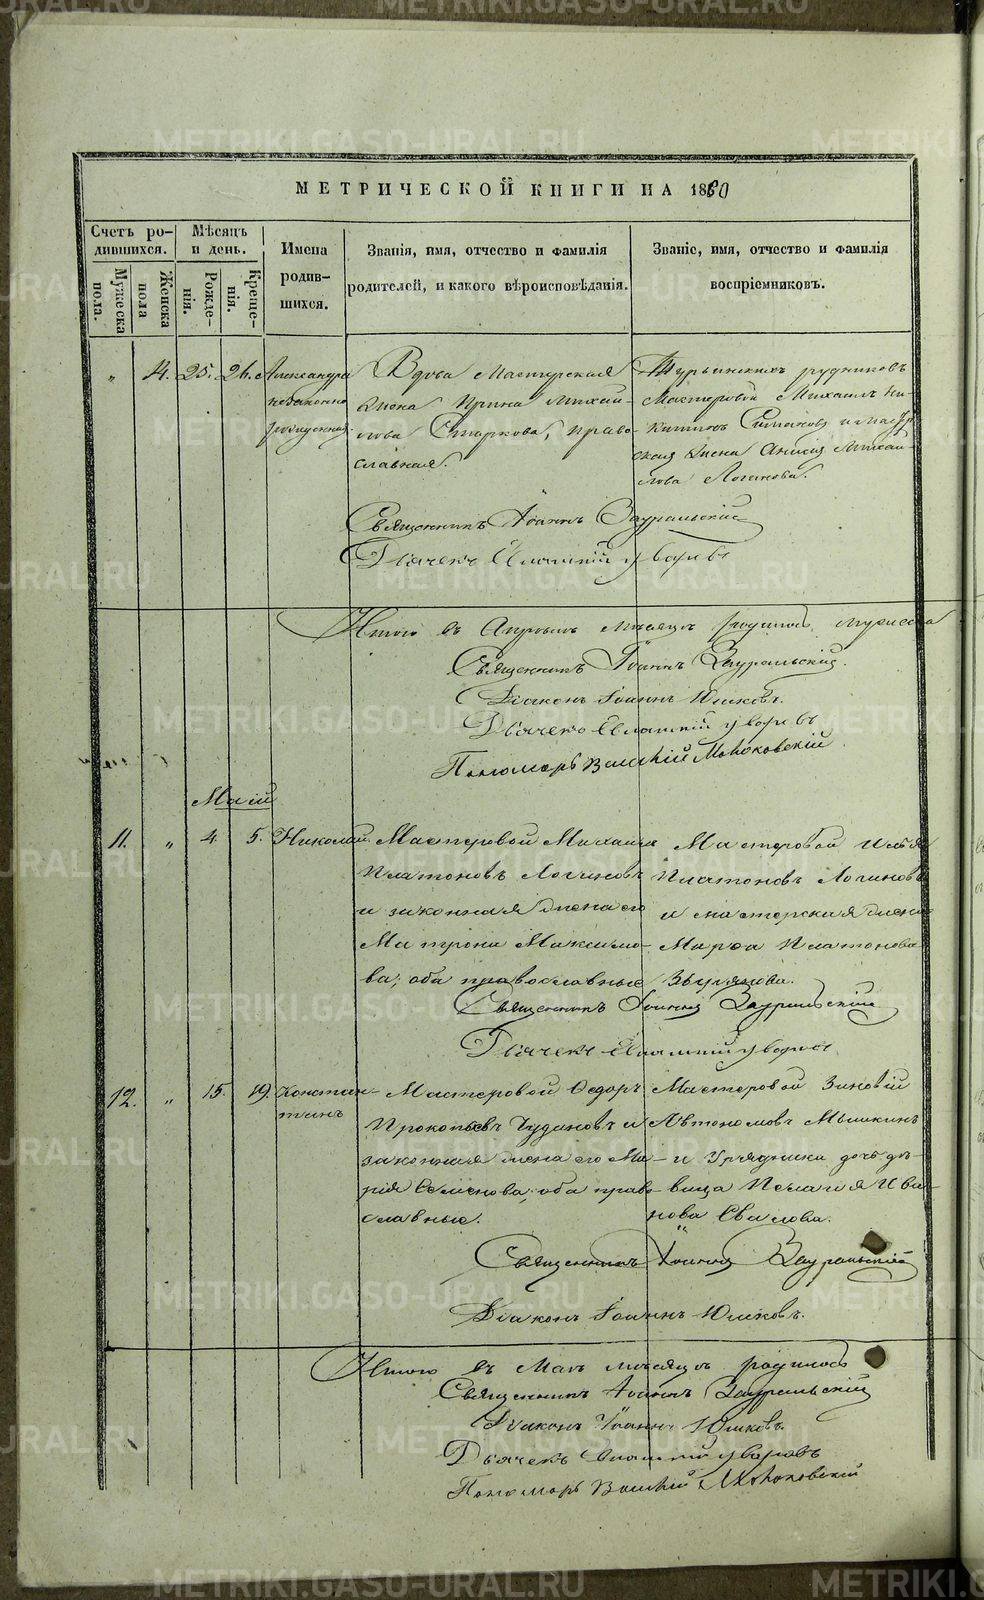 МЕТРИЧЕСКОЙ КНИГИ НА 1860
Счетъ ро-
дившихся.
Мѣсяцъ
и день.
Мужеска
пола.
Женска
пола
Рожде-
нія.
Креще-
нія.
Имена
родив-
шихся.
Званія, имя, отчество и фамилія
родителей, и какого вѣроисповѣданія.
Званіе, имя, отчество и фамилія
воспріемниковъ.
„ 4. 25. 26.
Александра
незаконно
рожденная.
Вдова Мастерская
жена Ирина Михай-
лова Старкова, право-
славная.
Турьинскихъ рудниковъ
Мастеровой Михаилъ Ни-
китинъ
жена Анисія Михай-
лова Логинова.
Священникъ Іоаннъ Зауральскій
Дьячекъ Уваровъ
Итого въ Апрѣлѣ мѣсяцѣ родилось мужеска
Священникъ Іоаннъ Зауральскій.
Діаконъ Іоаннъ Юшковъ.
Дьячекъ Уваровъ
Пономарь
Маій
11. „ 4. 5. Николай.
Мастеровой Михаилъ
Платоновъ Логиновъ
и законная жена его
Матрона Максимо-
ва; оба православные
Мастеровой Илья
Платоновъ Логиновъ
и мастерская жена
Марѳа Платонова
Зырянова.
Священникъ Іоаннъ Зауральскій
Дьячекъ Уваровъ
12. „ 15. 19. Констан-
тинъ
Мастеровой Ѳедоръ
Прокопьевъ Чудиновъ и
законная жена его Ма-
рія Семенова; оба право-
славные.
Мастеровой Зиновій
Автономовъ Мышкинъ
и Урядника дочь дѣ-
вица Пелагія Ива-
нова
Священникъ Іоаннъ Зауральскій
Діаконъ Іоаннъ Юшковъ.
Итого въ Маѣ мѣсяцѣ родилось
Священникъ Іоаннъ Зауральскій
Діаконъ Іоаннъ Юшковъ.
Дьячекъ Уваровъ
Пономарь
METRIKI.GASO-URAL.RU